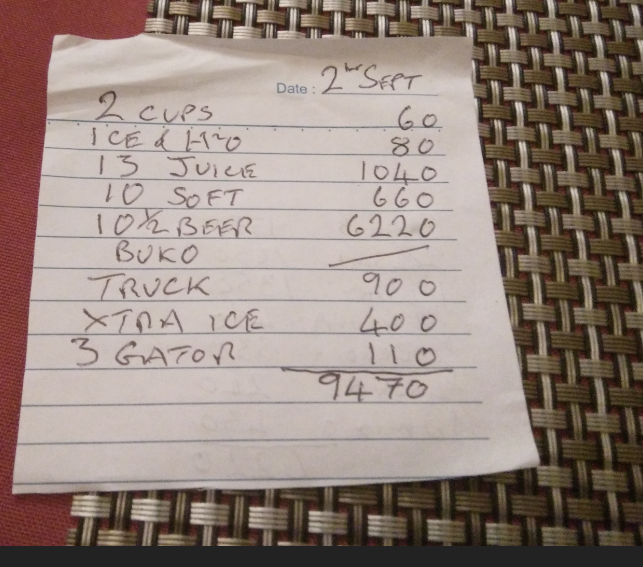 Date: 2nd SEPT
2 CUPS 60
ICE & H2O 80
13 JUICE 1040
10 SOFT 660
10 1/2 BEER 6220
BUKO —
TRUCK 900
XTRA ICE 400
3 GATOR 110
9470